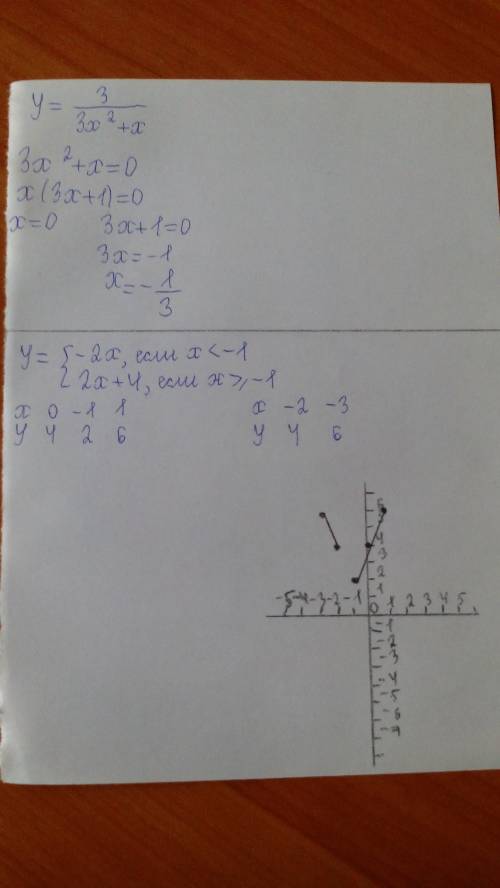 y = 3/(3x²+x)
3x²+x=0
x(3x+1)=0
x=0 3x+1=0
3x=-1
x=-1/3
y= { -2x, если x<-1
{ 2x+4, если x≥-1
x 0 -1 1 x -2 -3
y 4 2 6 y 4 6
6
5
4
3
2
1
-5 -4 -3 -2 -1 0 1 2 3 4 5
-1
-2
-3
-4
-5
-6
-7